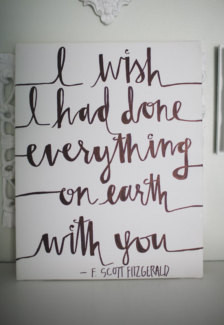 I wish
I had done
everything
on earth
with you
— F. SCOTT FITZGERALD